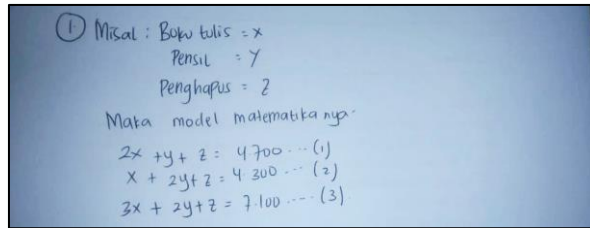 ① Misal : Buku tulis = x
Pensil : y
Penghapus = z
Maka model matematikanya.
2x + y + z = 4.700 ... (1)
x + 2y + z = 4.300 ... (2)
3x + 2y + z = 7.100 .... (3)